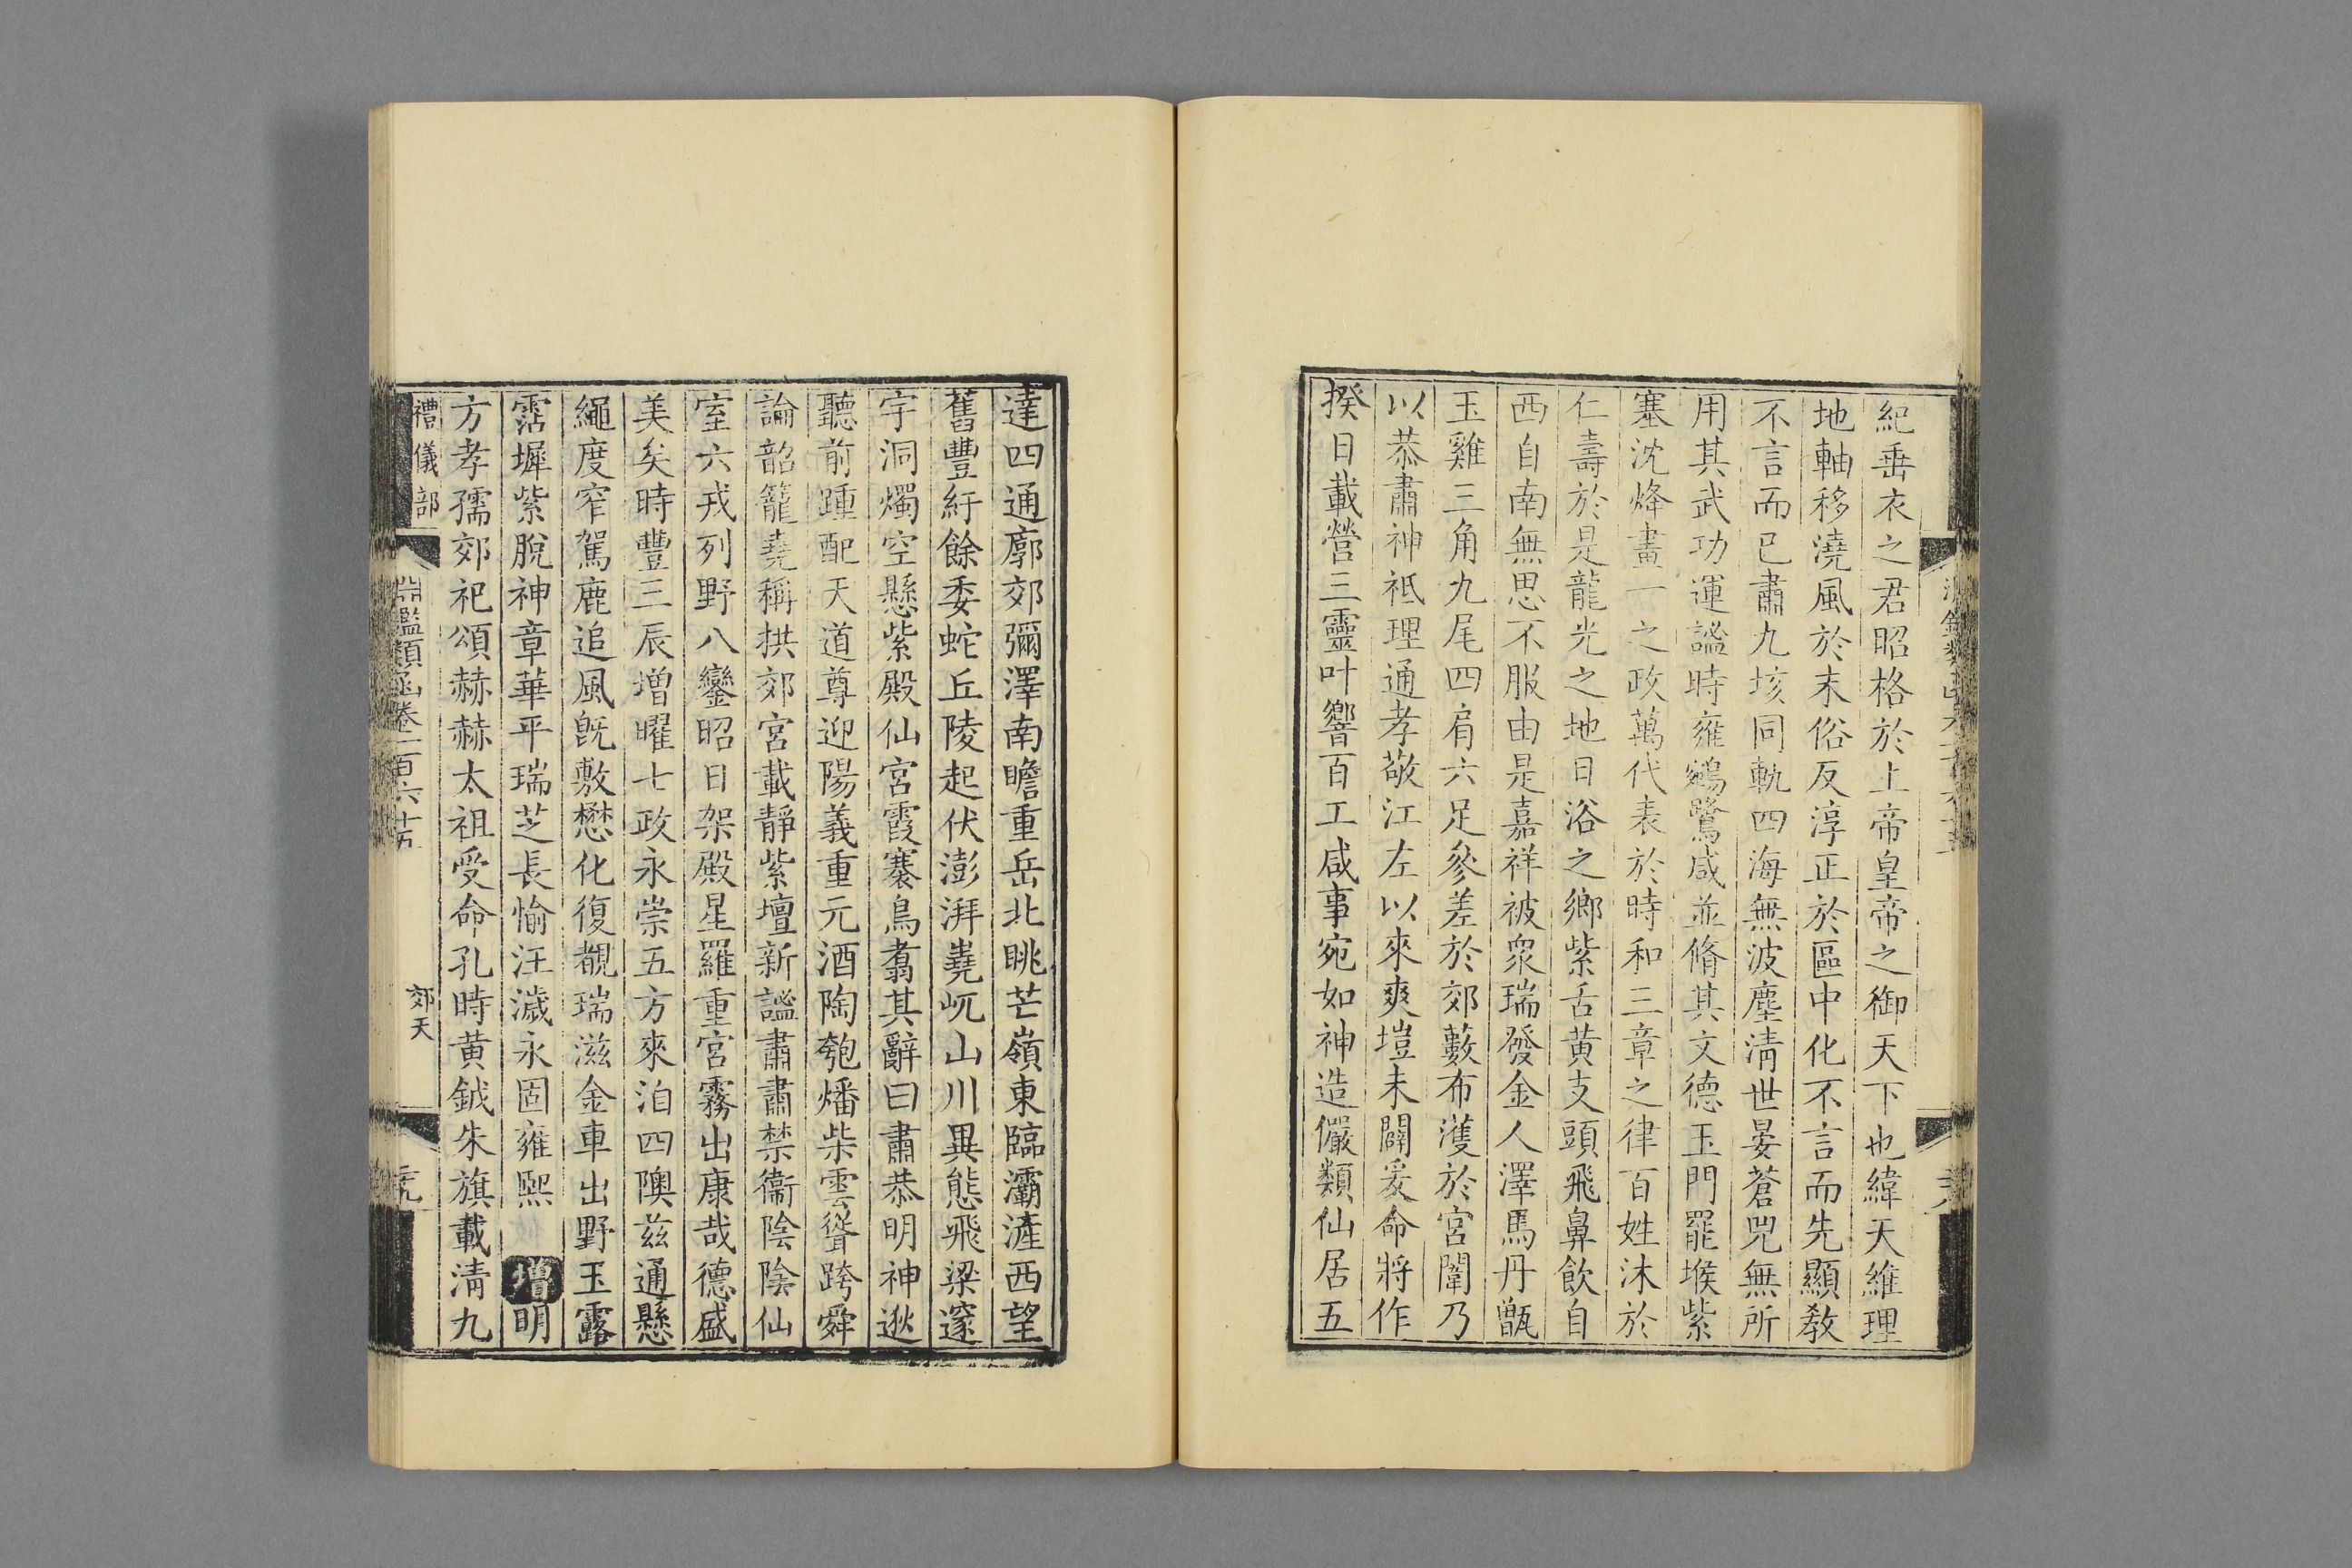 紀垂衣之君昭格於上帝皇帝之御天下也緯天維理
地軸移澆風於末俗反淳正於區中化不言而先顯教
不言而已肅九垓同軌四海無波塵清世晏蒼兕無所
用其武功運謐時雍鵷鷺咸並脩其文德玉門罷堠紫
塞沈烽畫一之政萬代表於時和三章之律百姓沐於
仁壽於是龍光之地日浴之鄉紫舌黄支頭飛鼻飲自
西自南無思不服由是嘉祥被衆瑞發金人澤馬丹甑
玉雞三角九尾四肩六足參差於郊藪布濩於宮闈乃
以恭肅神祇理通孝敬江左以來爽塏未闢爰命將作
揆日載營三靈叶響百工咸事宛如神造儼類仙居五
達四通廓郊彌澤南瞻重岳北眺芒嶺東臨灞滻西望
舊豐紆餘委蛇丘陵起伏澎湃嶤屼山川異態飛梁邃
宇洞燭空懸紫殿仙宮霞褰鳥翥其辭曰肅恭明神逖
聽前踵配天道尊迎陽義重元酒陶匏燔柴雲聳跨舜
論韶籠堯稱拱郊宮載靜紫壇新謐肅肅禁衞陰陰仙
室六戎列野八鑾昭日架殿星羅重宮霧出康哉德盛
美矣時豐三辰増曜七政永崇五方來洎四隩兹通懸
繩度窄駕鹿追風旣敷懋化復覩瑞滋金車出野玉露
霑墀紫脫神章華平瑞芝長愉汪濊永固雍熙 增明
方孝孺郊祀頌赫赫太祖受命孔時黄鉞朱旗載清九
禮儀部 淵鑑類函卷一百六十五 郊天